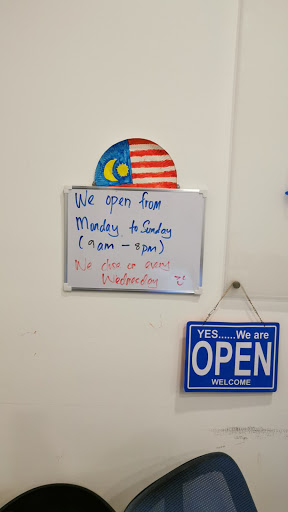 We open from
Monday to Sunday
(9am - 8pm)
We close on every
Wednesday
YES......We are
OPEN
WELCOME